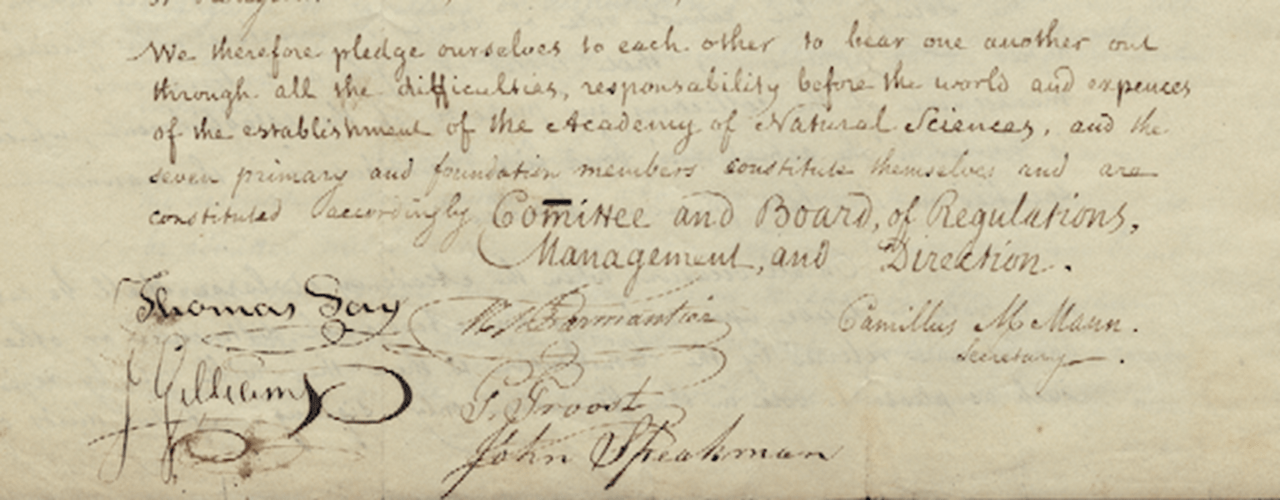 We therefore pledge ourselves to each other to bear one another out
through all the difficulties, responsability before the world and expences
of the establishment of the Academy of Natural Sciences, and the
seven primary and foundation members constitute themselves and are
constituted accordingly Com̄ittee and Board, of Regulations,
Management, and Direction.
Thomas Say
Parmantier
Camillus McMann.
Secretary.
J Gilliams
G. Troost
John Speakman